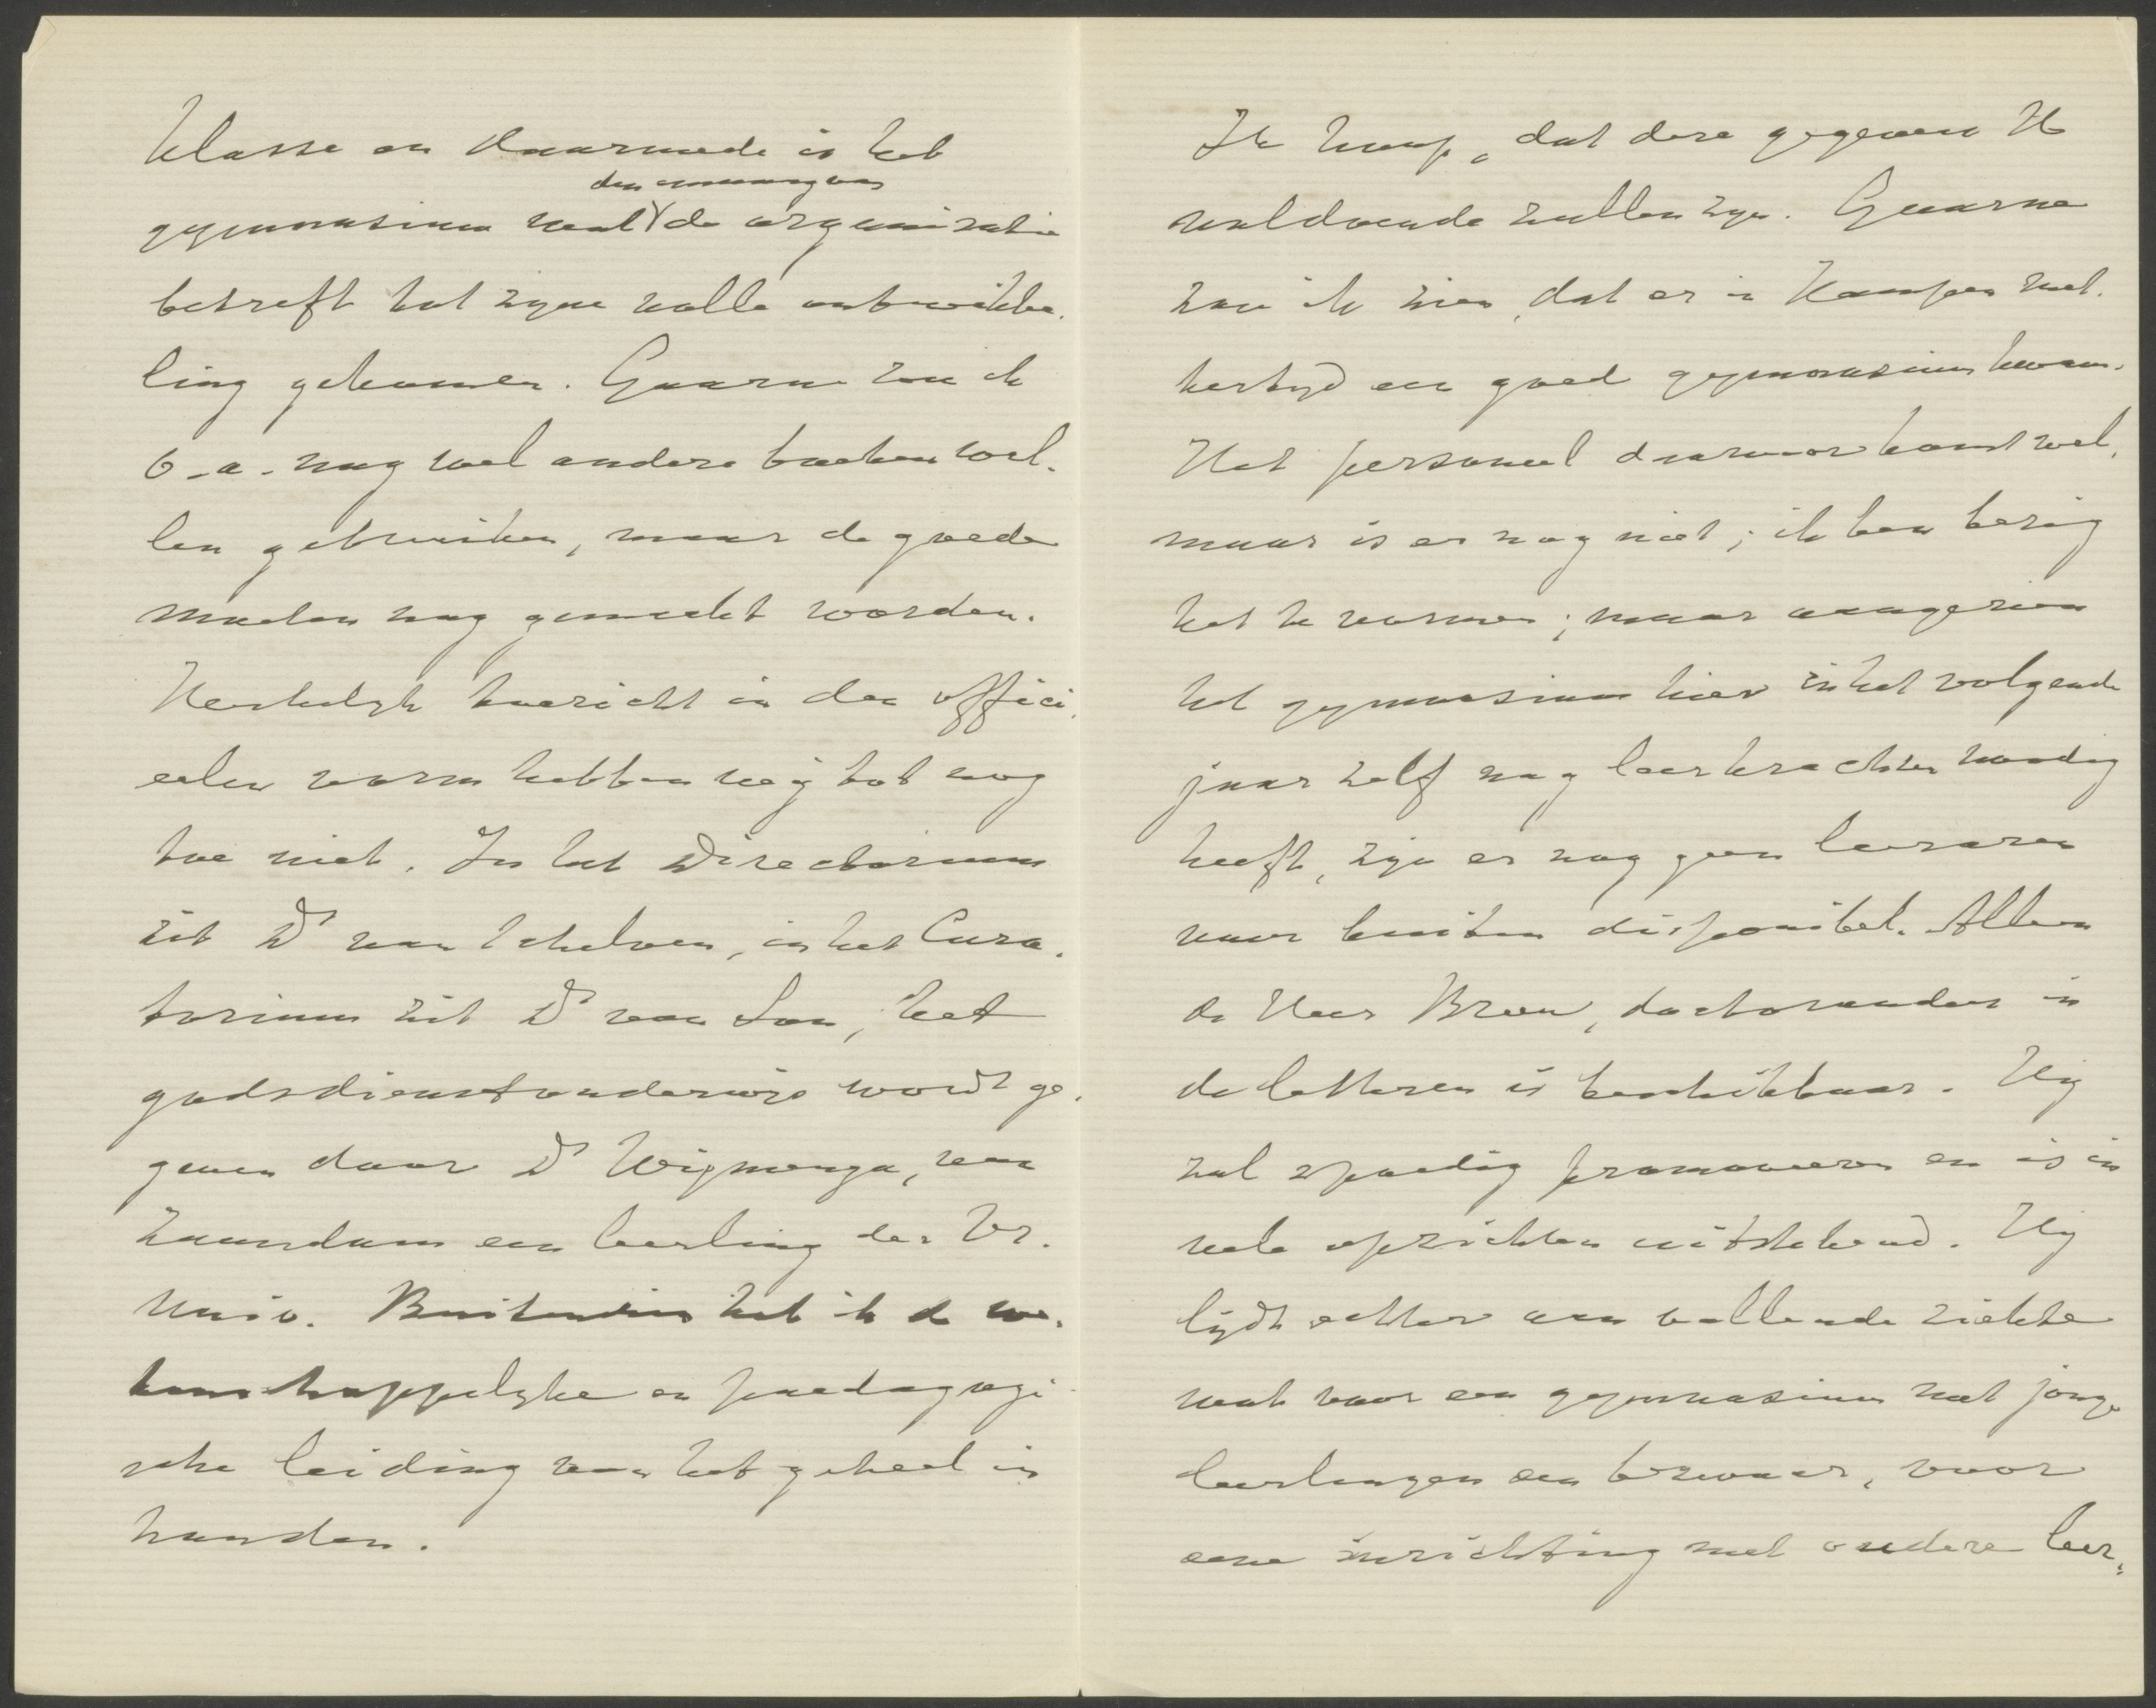 klasse en daarmede is het
den omvang van
gymnasium wat de organisatie
betreft tot zijne volle ontwikke-
ling gekomen. Gaarne zou ik
o.a. nog wel andere boeken wil-
len gebruiken, maar de goede
moeten nog gemaakt worden.
Kerkelijk toezicht in den offici-
eelen vorm hebben wij tot nog
toe niet. In het Directorium
zit Ds van Schelven, in het Cura-
torium zit Ds van Son, het
godsdienstonderwijs wordt ge-
geven door Ds Wijmenga, van
Zaandam een leerling der Vr.
Univ. Buitendien heb ik de we-
tenschappelijke en paedagogi-
sche leiding van het geheel in
handen.
Ik hoop, dat deze gegevens U
voldoende zullen zijn. Gaarne
zou ik zien, dat er in Kampen met-
tertijd een goed gymnasium kwam.
Het personeel daarvoor komt wel,
maar is er nog niet; ik ben bezig
het te vormen; maar aangezien
het gymnasium hier in het volgende
jaar zelf nog leerkrachten noodig
heeft, zijn er nog geen leeraren
voor buiten disponibel. Alleen
de Heer Breen, doctorandus in
de letteren is beschikbaar. Hij
zal spoedig promoveeren en is in
vele opzichten uitstekend. Hij
lijdt echter aan vallende ziekte
wat voor een gymnasium met jonge
leerlingen een bezwaar, voor
eene inrichting met oudere leer-